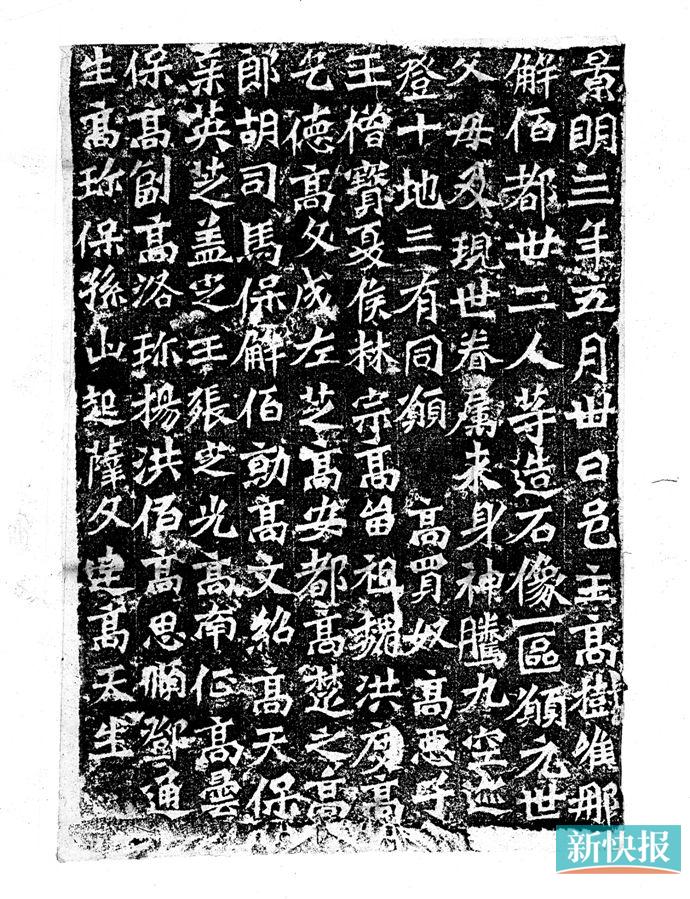 景明三年五月卅日邑主高樹唯那
解佰都卅二人等造石像一區願元世
父母及現世眷属来身神騰九空迹
登十地三有同願 高買奴高惡子
王僧寶夏侯林宗高留祖魏洪度高
乞德高文成左芝高安都高楚之高
郎胡司馬保解佰勍高文紹高天保
英芝盖定王張定光高南征高曇
保高副高洛珎楊洪佰高思順鄧通
生高珎保孫山起薛文達高天生
新快报